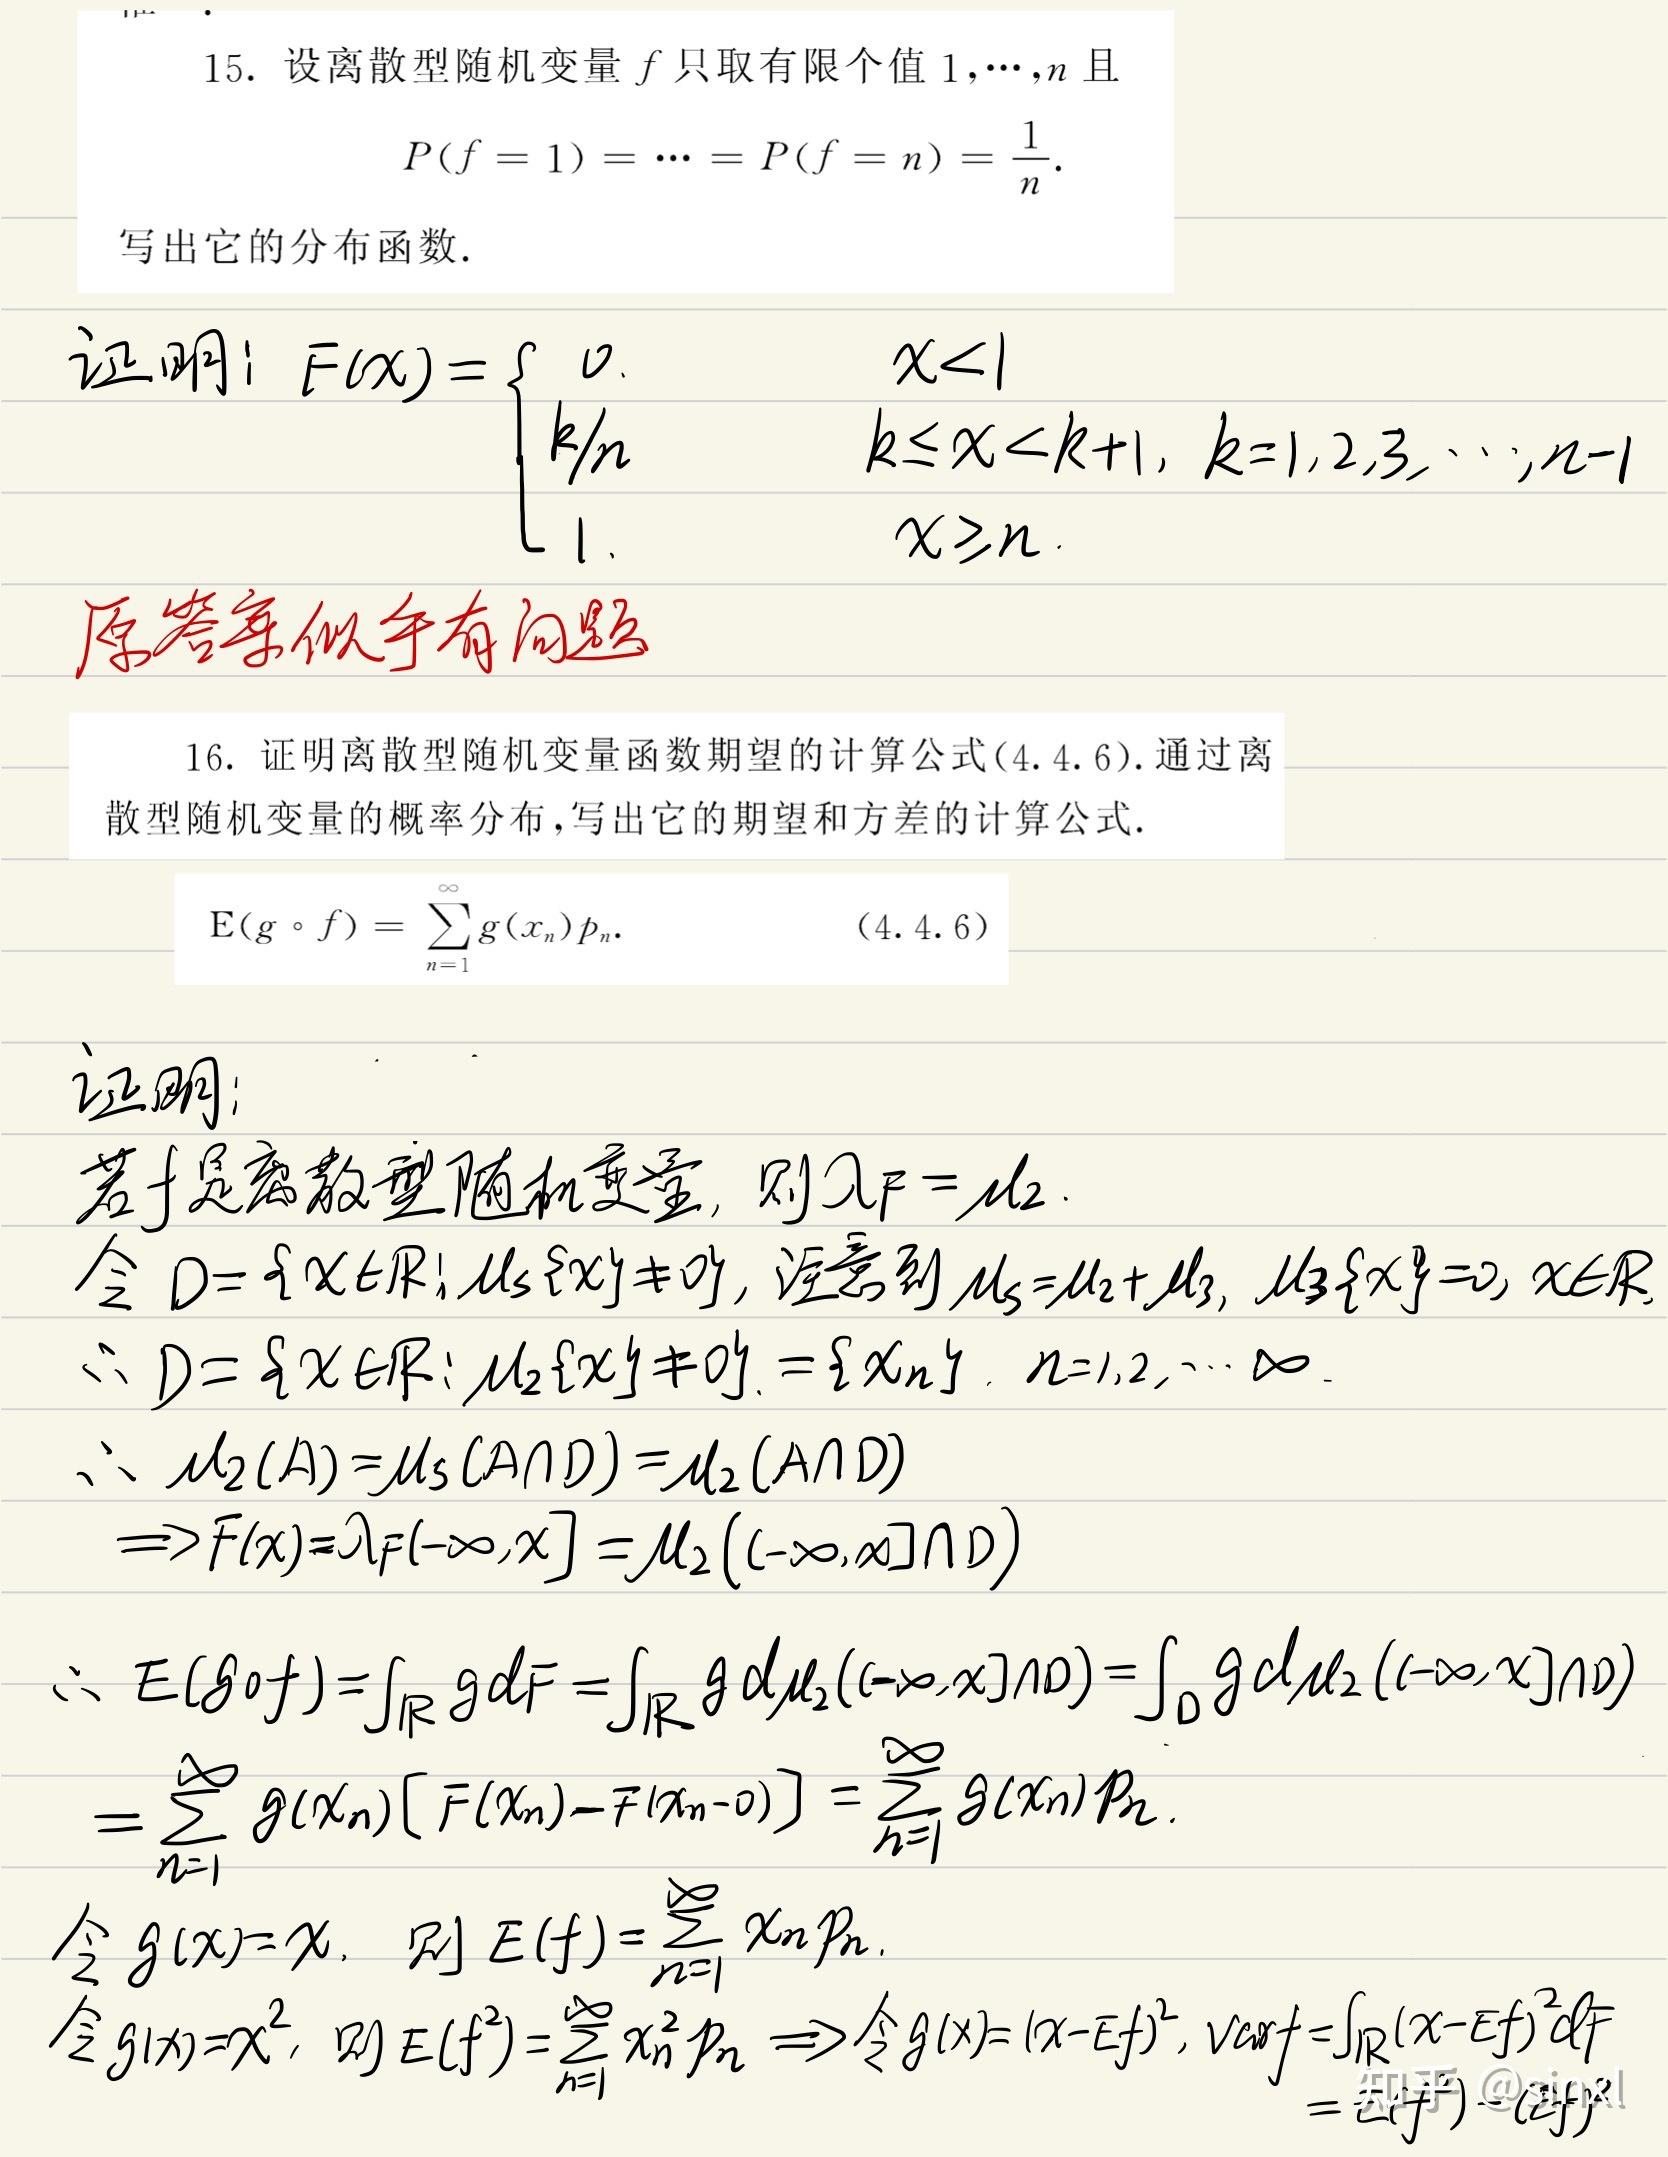 15. 设离散型随机变量 f 只取有限个值 1,⋯,n 且
P(f = 1) = ⋯ = P(f = n) = 1/n.
写出它的分布函数.
证明: F(x) = { 0. x<1
k/n k≤x<k+1, k=1,2,3,⋯,n-1
1. x≥n.
原答案似乎有问题
16. 证明离散型随机变量函数期望的计算公式(4.4.6).通过离
散型随机变量的概率分布,写出它的期望和方差的计算公式.
E(g∘f) = ∑_{n=1}^{∞} g(x_n)p_n. (4.4.6)
证明:
若f是离散型随机变量, 则λ_F=μ_2.
令 D={x∈R: μ_s{x}≠0}, 注意到 μ_s=μ_2+μ_3, μ_3{x}=0, x∈R.
∴ D={x∈R: μ_2{x}≠0}.={x_n}. n=1,2,⋯∞.
∴ μ_2(A)=μ_s(A∩D)=μ_2(A∩D)
⟹F(x)=λ_F(-∞,x]=μ_2((-∞,x]∩D)
∴ E(g∘f)=∫_R g dF=∫_R g dμ_2((-∞,x]∩D)=∫_D g dμ_2((-∞,x]∩D)
=∑_{n=1}^{∞} g(x_n)[F(x_n)-F(x_n-0)]=∑_{n=1}^{∞} g(x_n)p_n.
令 g(x)=x, 则 E(f)=∑_{n=1}^{∞} x_n p_n.
令g(x)=x², 则 E(f²)=∑_{n=1}^{∞} x_n² p_n ⟹令g(x)=(x-Ef)², var f=∫_R(x-Ef)²dF
=E(f²)-(Ef)²
知乎 @sinxl